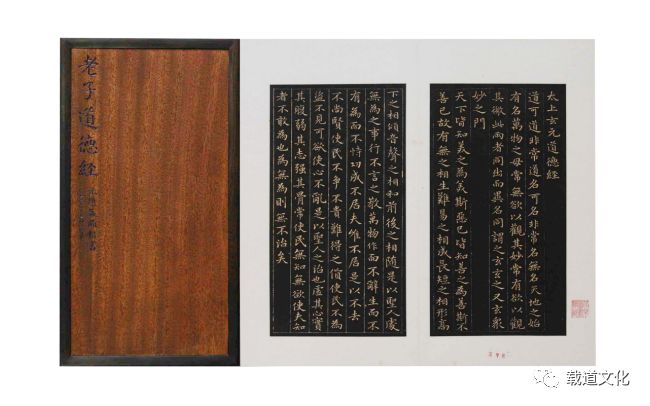 老子道德經
太上玄元道德經
道可道非常道名可名非常名無名天地之始
有名萬物之母常無欲以觀其妙常有欲以觀
其徼此兩者同出而異名同謂之玄玄之又玄衆
妙之門
天下皆知美之為美斯惡已皆知善之為善斯不
善已故有無之相生難易之相成長短之相形高
下之相傾音聲之相和前後之相隨是以聖人處
無為之事行不言之教萬物作而不辭生而不
有為而不恃功成不居夫惟不居是以不去
不尚賢使民不爭不貴難得之貨使民不為
盜不見可欲使心不亂是以聖人之治也虛其心實
其腹弱其志强其骨常使民無知無欲使夫知
者不敢為也為無為則無不治矣
载道文化